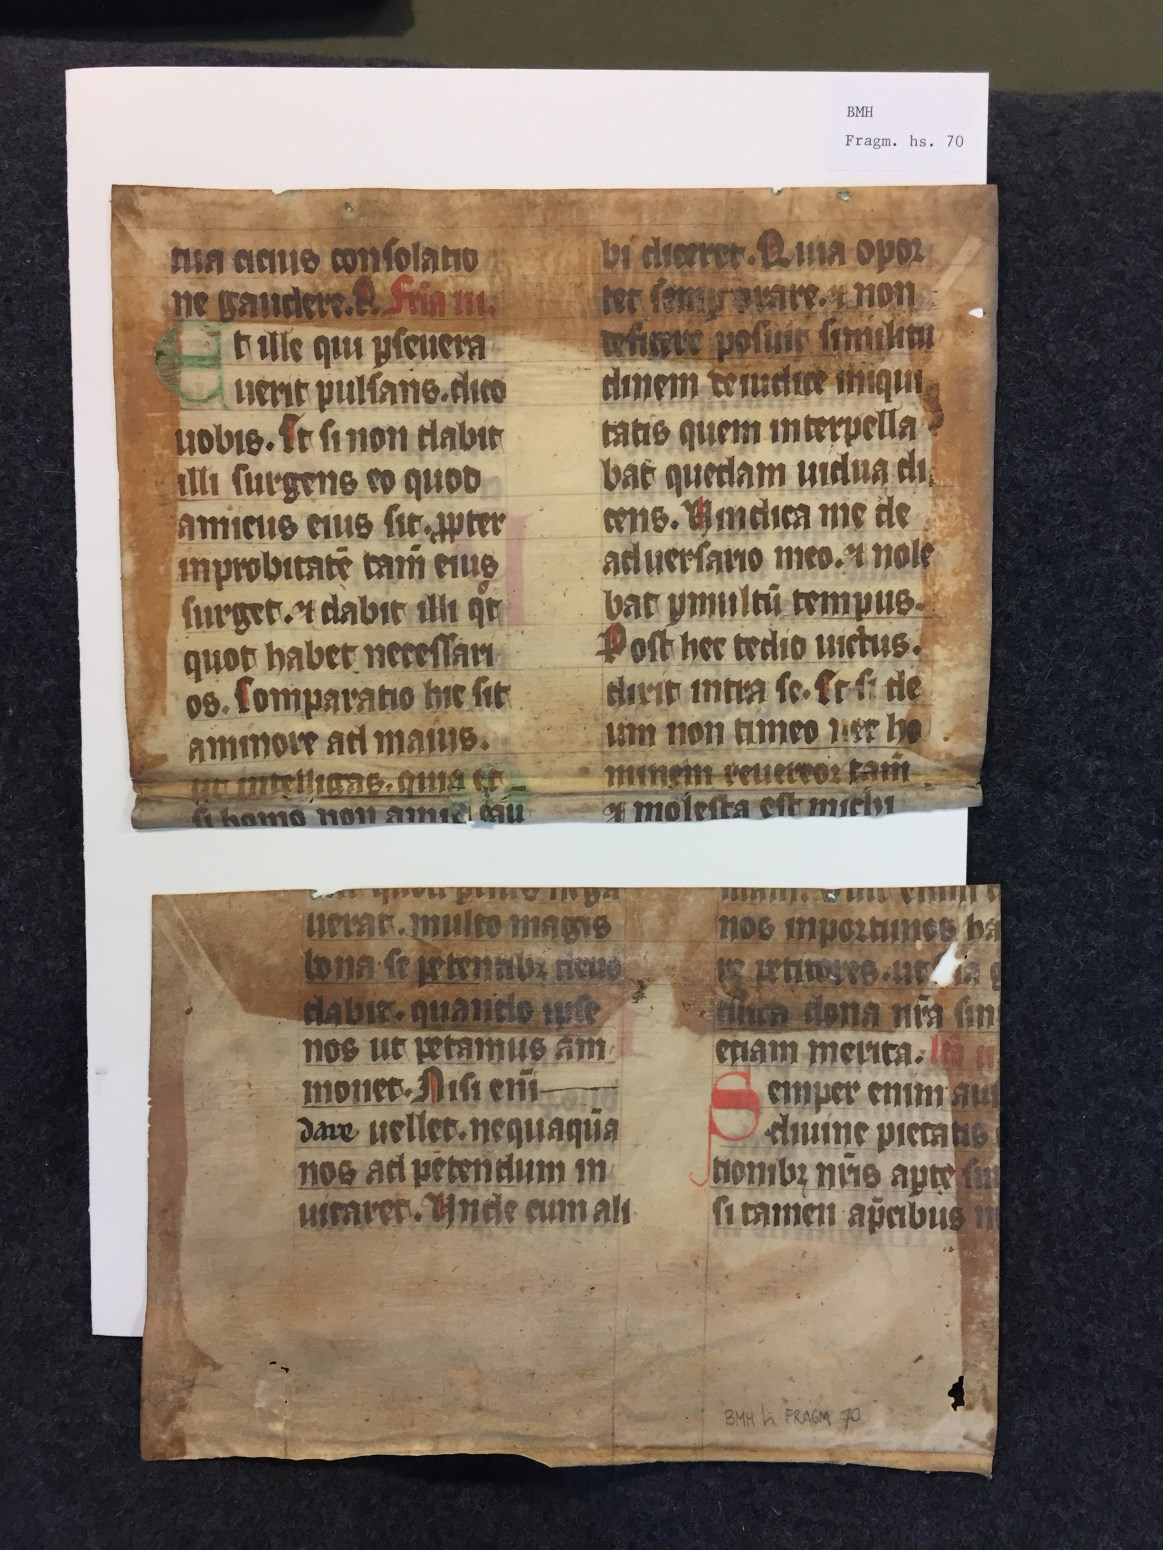 BMH
Fragm. hs. 70
tua citius consolatio
ne gaudere. R. Feria iii.
Et ille qui pseuera
uerit pulsans. dico
uobis. Et si non dabit
illi surgens eo quod
amicus eius sit. ppter
inprobitatē tam̄ eius
surget. ⁊ dabit illi qͦt
quot habet necessari
os. Comparatio hic sit
a minore ad maius.
ut intelligas. quia et
si homo non amic cau
bi diceret. Quia opor
tet semp orare. ⁊ non
deficere posuit similitu
dinem de iudice iniqui
tatis quem interpella
bat quedam uidua di
cens. Uindica me de
aduersario meo. ⁊ nole
bat p multū tempus.
Post hec tedio uictus.
dixit intra se. Et si de
um non timeo nec ho
minem reuereor tam̄
⁊ molesta est michi
quod prius nega
uerat. multo magis
bona se petentibꝫ deus
dabit. quando ipse
nos ut petamus am
monet. Nisi eni̅
dare uellet. nequaquā
nos ad petendum in
uitaret. Unde cum ali
enim
nos inportunos ha
re petitores. ut
dona nr̄a sin
etiam merita.
Semper enim aur
diuine pietatis
tionibꝫ nr̄is apte sun
si tamen ap̄cibus n
BMH h FRAGM 70